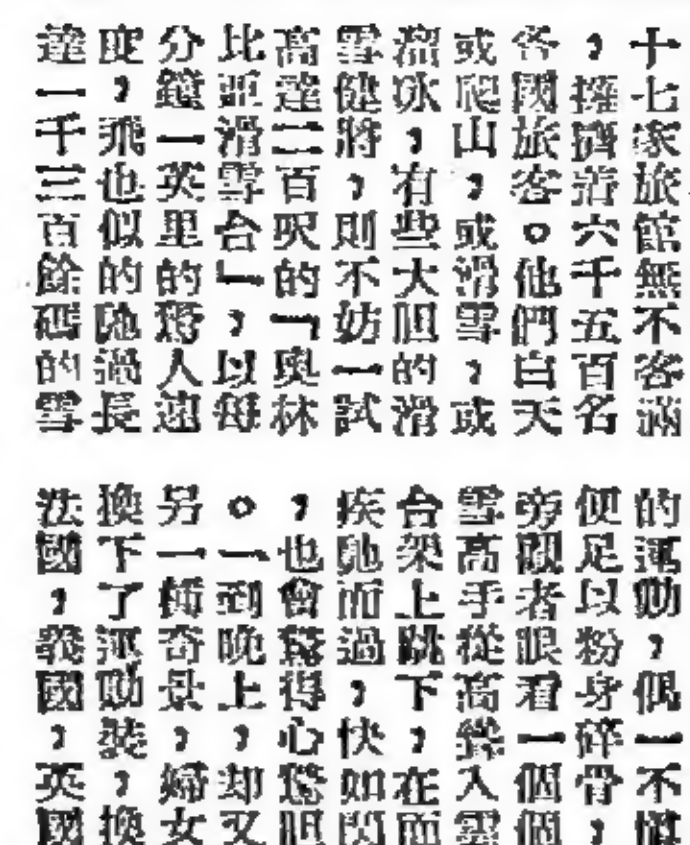 十七家旅館無不客滿
，擁擠着六千五百名
各國旅客。他們白天
或爬山，或滑雪，或
溜冰，有些大胆的滑
雪健將，則不妨一試
高達二百呎的「奧林
比亞滑雪台」，以每
分鐘一英里的驚人速
度，飛也似的馳過長
達一千三百餘碼的雪
的運動，偶一不慎
便足以粉身碎骨，
旁觀者眼看一個個
雪高手從高聳入雲
台架上跳下，在面
疾馳而過，快如閃
，也會驚得心驚胆
。一到晚上，却又
另一種奇景，婦女
換下了運動裝，換
法國，義國，英國